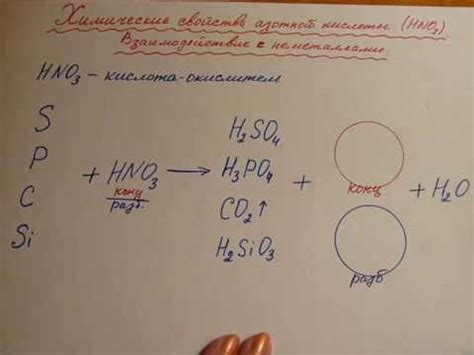 Химические свойства азотной кислоты (HNO₃)
Взаимодействие с неметаллами.
HNO₃ – кислота-окислитель
S
P
C
Si
+ HNO₃ →
конц
разб.
H₂SO₄
H₃PO₄
CO₂↑
H₂SiO₃
+
конц
разб
+ H₂O